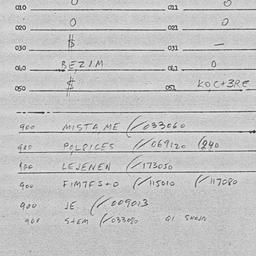 010 0 011 0
020 0 021 0
030 $ 031 —
040 BEZIM 041 0
050 $ 051 KOC+3RE
900 MISTAME (/033060
900 POLPICES (/069120 (240
900 LEJENEN (/173050
900 FIMTES+O (/115010 (/117080
900 JE (/009013
900 STEM (/033080 01